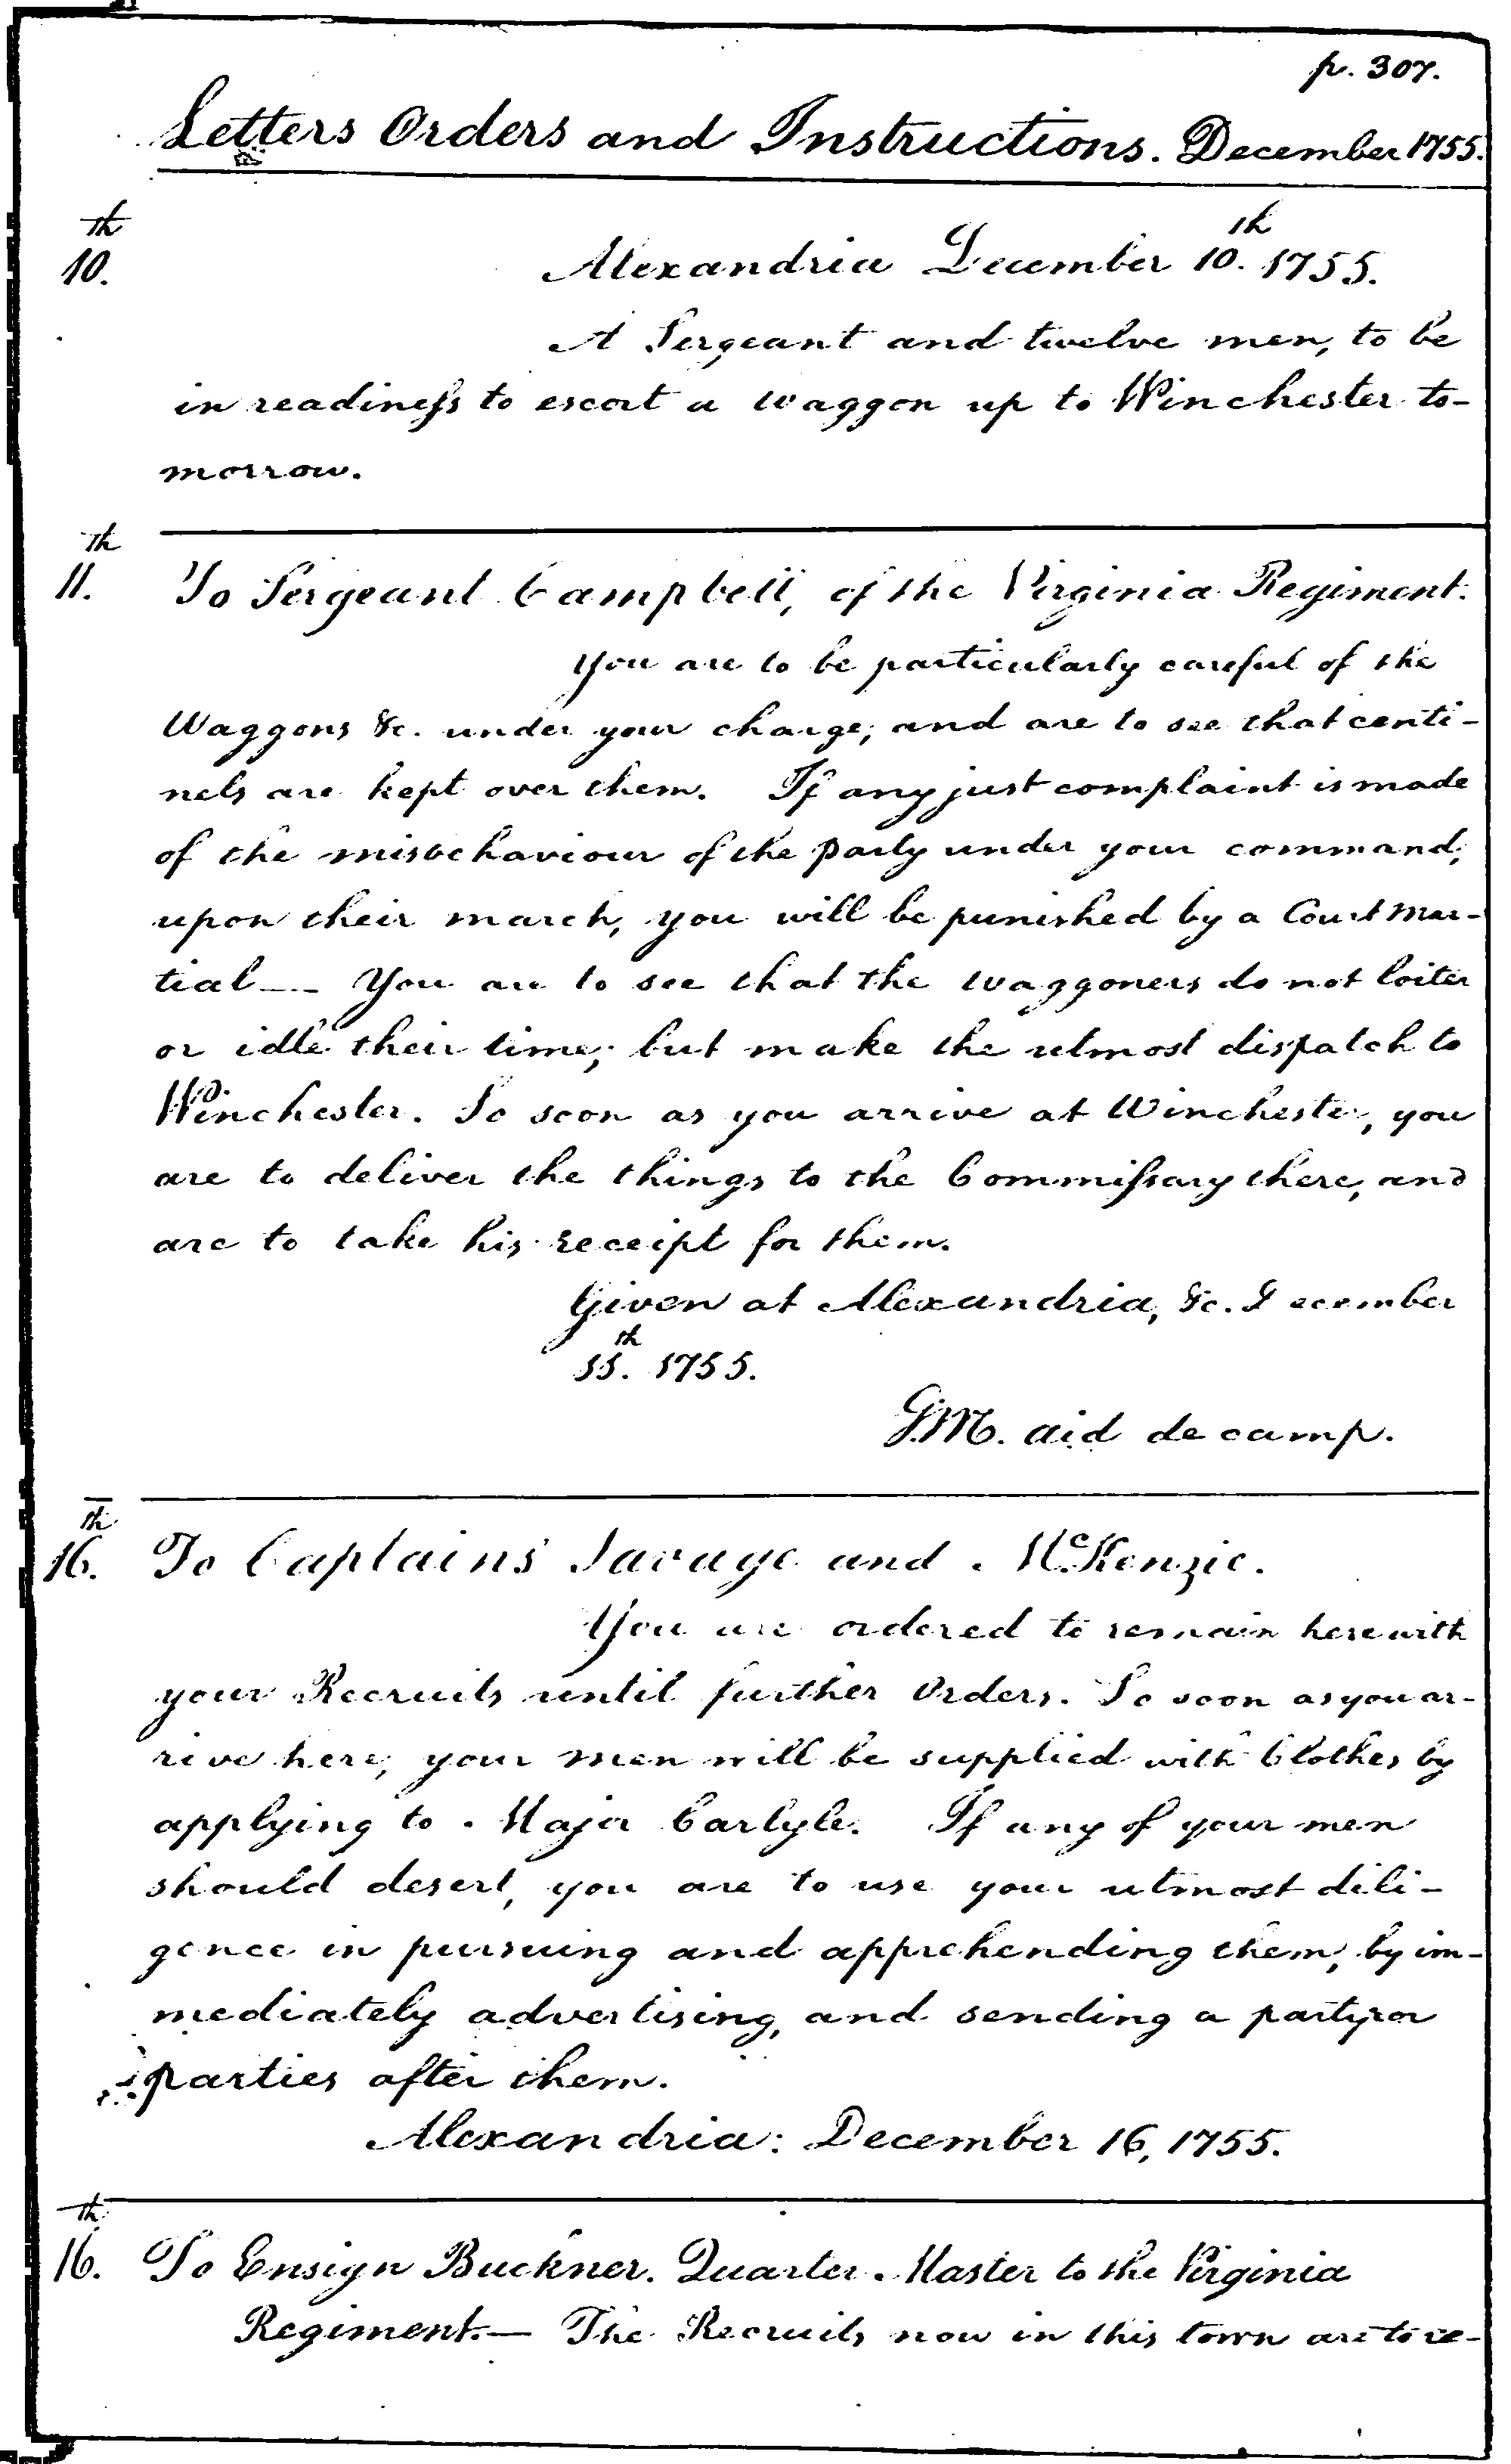 p. 307.
Letters Orders and Instructions. December 1755.
10.th
Alexandria December 10.th 1755.
A Sergeant and twelve men, to be
in readiness to escort a waggon up to Winchester to-
morrow.
11.th To Sergeant Campbell, of the Virginia Regiment.
You are to be particularly careful of the
Waggons &c. under your charge; and are to see that centi-
nels are kept over them. If any just complaint is made
of the misbehaviour of the Party under your command,
upon their march, you will be punished by a Court Mar-
tial — You are to see that the waggoners do not loiter
or idle their time; but make the utmost dispatch to
Winchester. So soon as you arrive at Winchester, you
are to deliver the things to the Commissary there, and
are to take his receipt for them.
Given at Alexandria, &c. December
11.th 1755.
G.M. aid de camp.
16.th To Captains Savage and McKenzie.
You are ordered to remain here with
your Recruits until further Orders. So soon as you ar-
rive here, your men will be supplied with Clothes by
applying to Major Carlyle. If any of your men
should desert, you are to use your utmost dili-
gence in pursuing and apprehending them, by im-
mediately advertising, and sending a party or
parties after them.
Alexandria: December 16, 1755.
16.th To Ensign Buckner. Quarter-Master to the Virginia
Regiment.— The Recruits now in this town are to re-